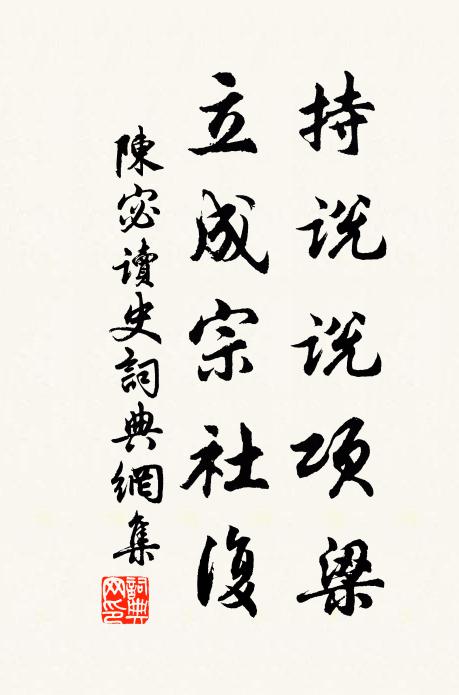 持说说项梁
立成宗社復
陳宓讀史詞典網集
詞典网印